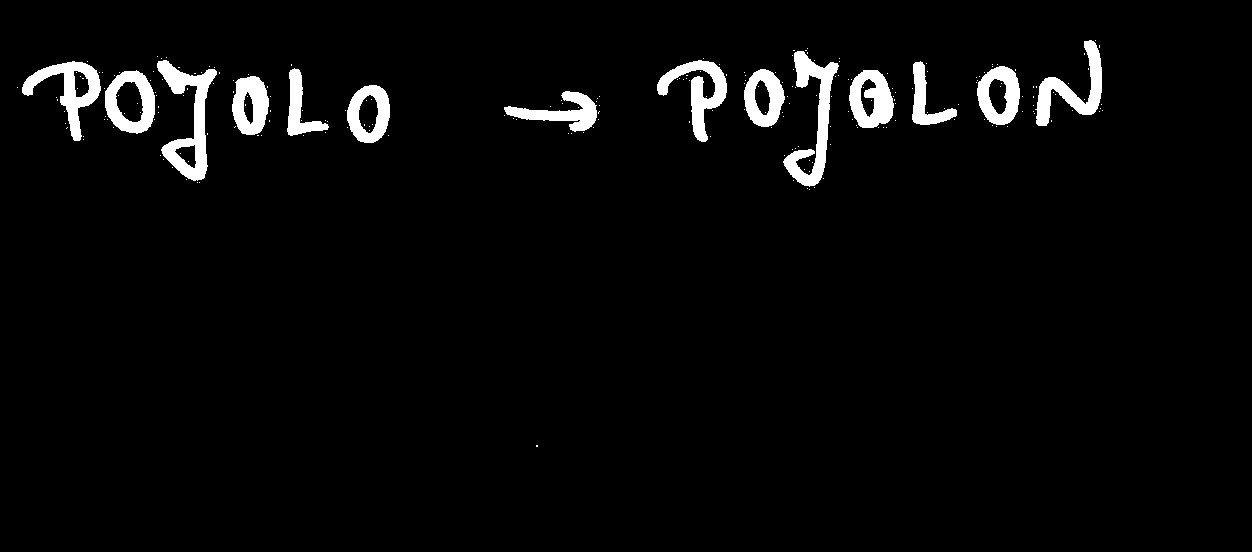 POYOLO → POYOLON